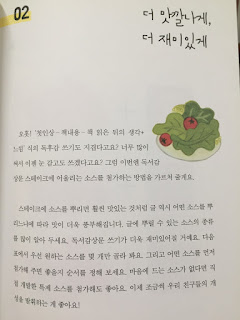 02
더 맛깔나게,
더 재미있게
오홋! '첫인상 - 책내용 - 책 읽은 뒤의 생각+
느낌' 식의 독후감 쓰기도 지겹다고요? 너무 많이
써서 이젠 눈 감고도 쓰겠다고요? 그럼 이번엔 독서감
상문 스테이크에 어울리는 소스를 첨가하는 방법을 가르쳐 줄게요.
스테이크에 소스를 뿌리면 훨씬 맛있는 것처럼 글 역시 어떤 소스를 뿌
리느냐에 따라 맛이 더욱 풍부해집니다. 글에 뿌릴 수 있는 소스의 종류
를 많이 알아 두세요. 독서감상문 쓰기가 더욱 재미있어질 거예요. 다음
표에서 우선 원하는 소스를 몇 개만 골라 봐요. 그리고 어떤 소스를 먼저
첨가해 주면 좋을지 순서를 정해 보세요. 마음에 드는 소스가 없다면 직
접 개발한 특제 소스를 첨가해도 좋아요. 이제 조금씩 우리 친구들의 개
성을 발휘하는 게 좋아요!